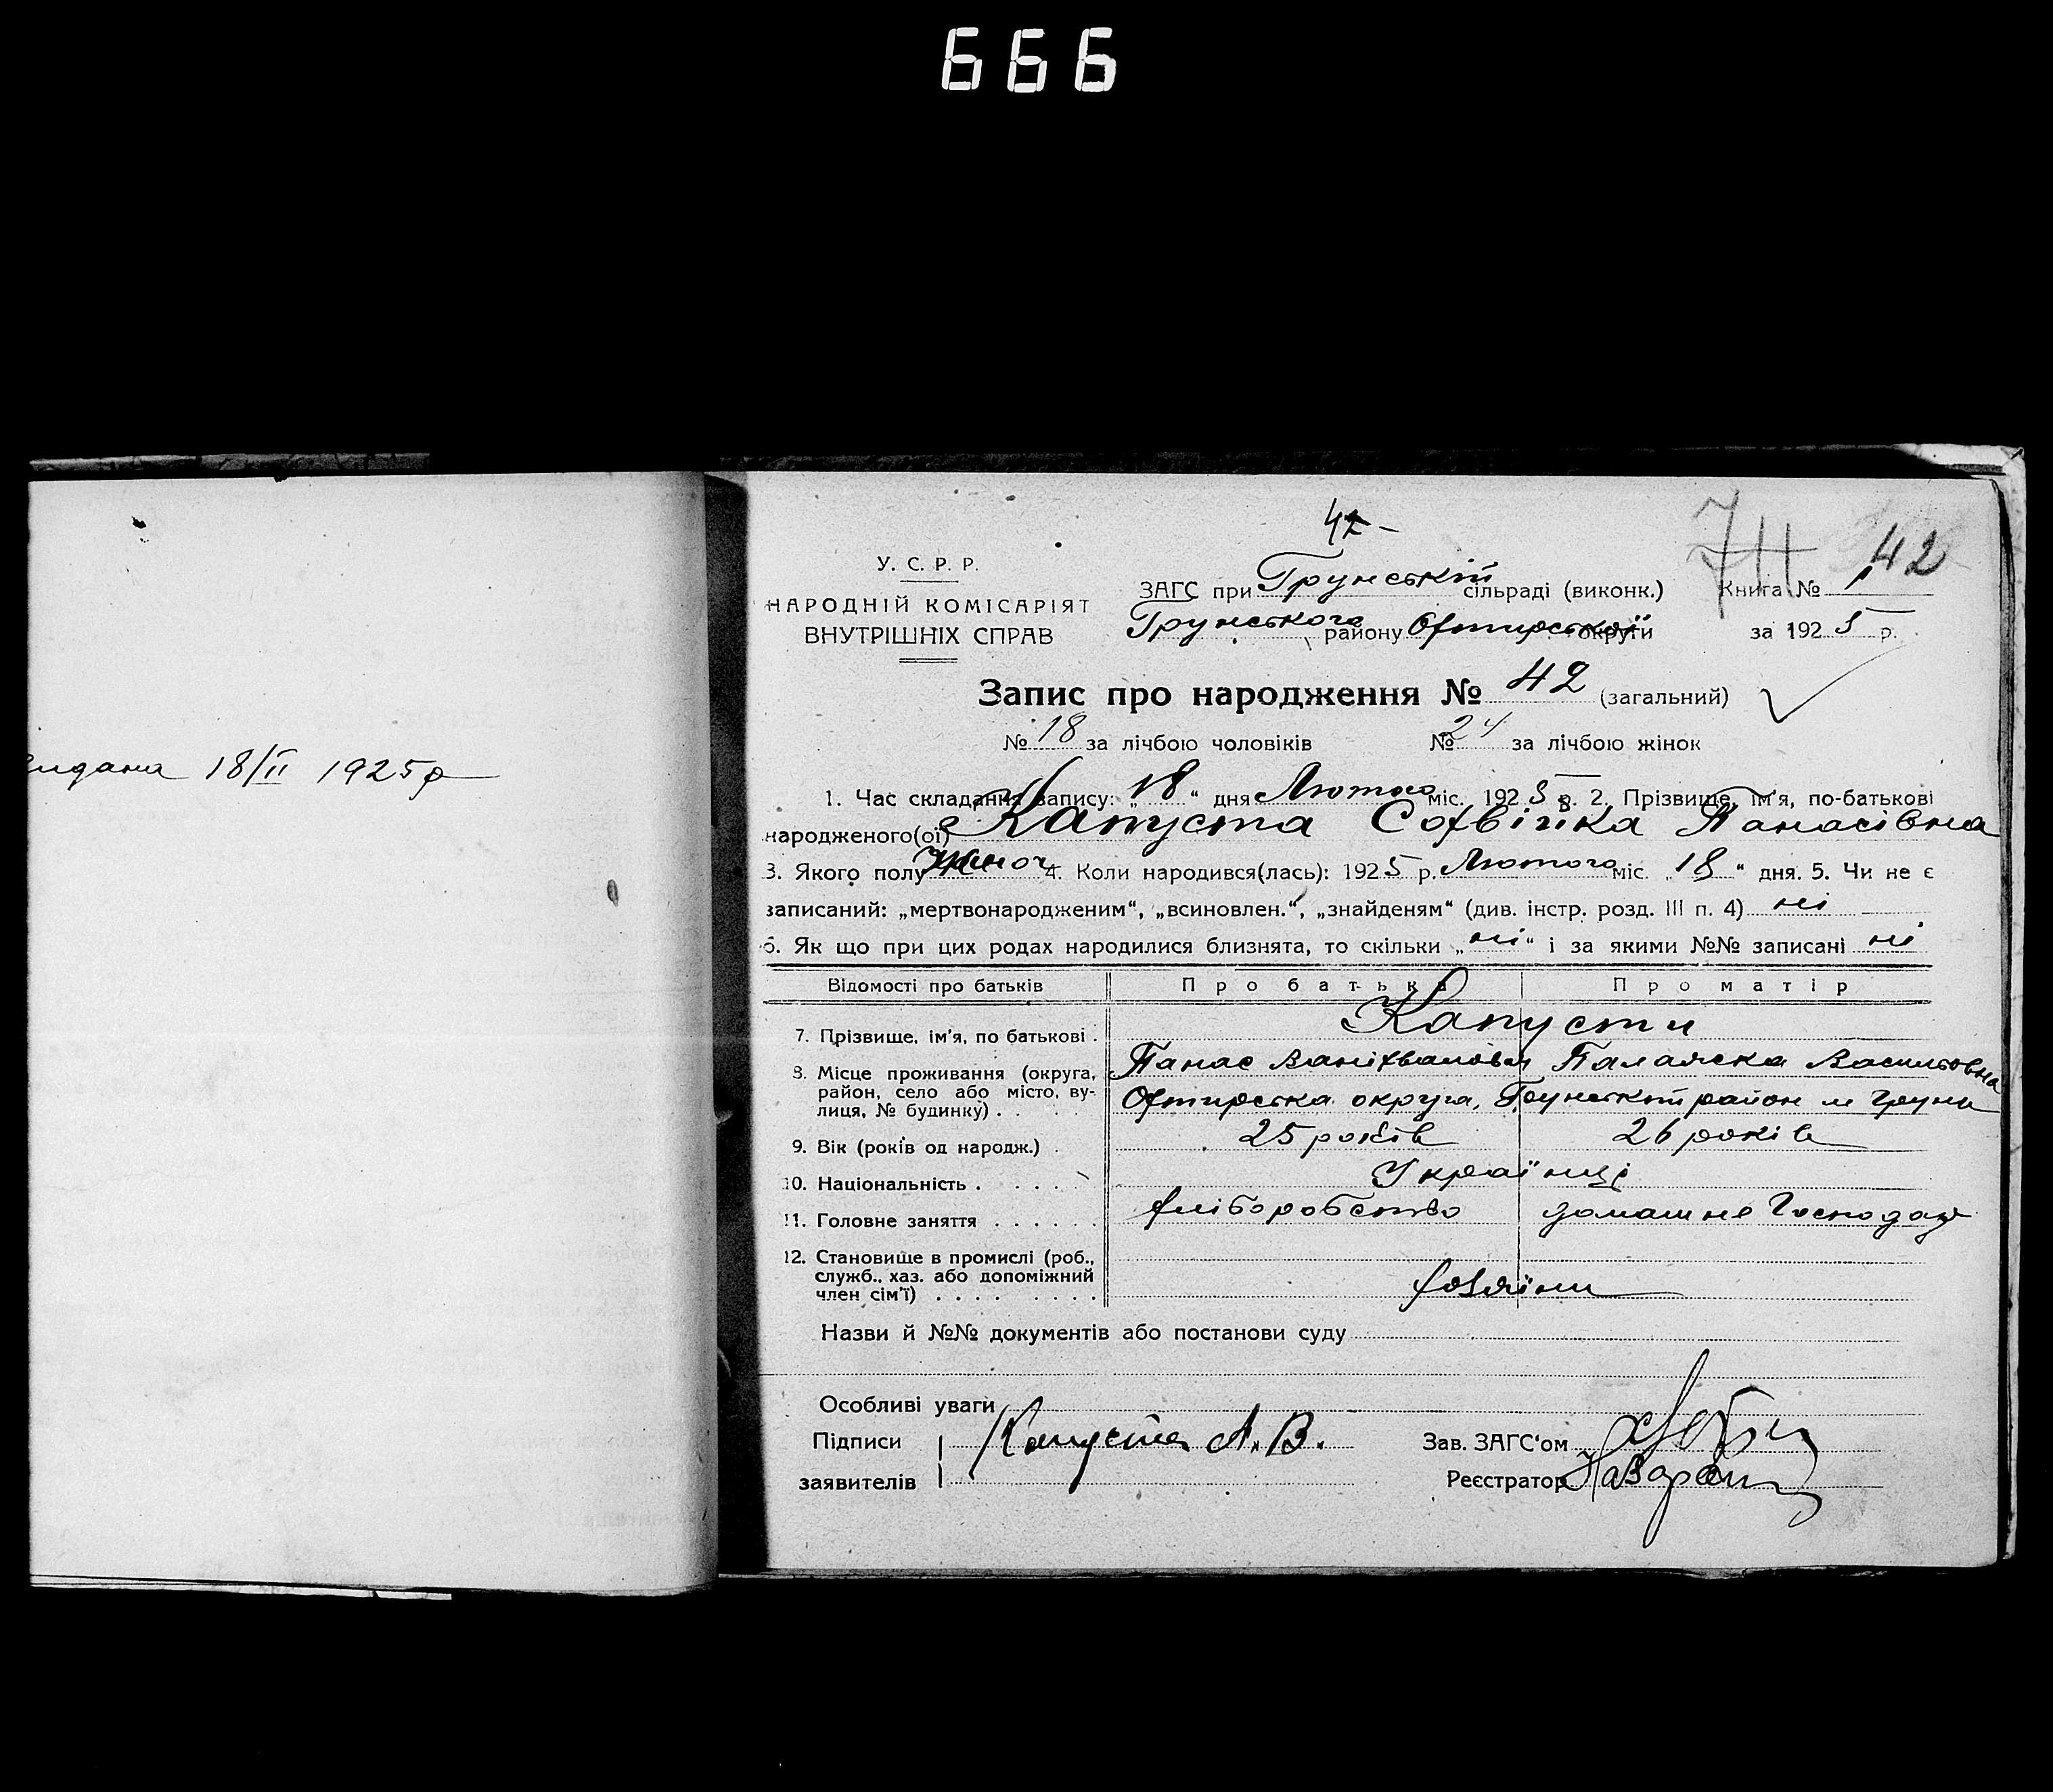 666
42
74
42
У. С. Р. Р.
НАРОДНІЙ КОМІСАРІЯТ
ВНУТРІШНІХ СПРАВ
ЗАГС при Грунській сільраді (виконк.)
Грунського району Охтирської округи
Книга № 1
за 1925 р.
Запис про народження № 42 (загальний)
№ 18 за лічбою чоловіків № 24 за лічбою жінок
видана 18/II 1925 р
1. Час складання запису: „18“ дня Лютого міс. 1925 р. 2. Прізвище, ім'я, по-батькові
народженого(ої) Капуста Панасівна
3. Якого полу Жіноч 4. Коли народився(лась): 1925 р. Лютого міс. „18“ дня. 5. Чи не є
записаний: „мертвонародженим“, „всиновлен.“, „знайденям“ (див. інстр. розд. III п. 4) ні
6. Як що при цих родах народилися близнята, то скільки „ні“ і за якими №№ записані ні
Відомості про батьків Про батька Про матір
7. Прізвище, ім'я, по батькові . Капусти
Панас Палажка Васильовна
8. Місце проживання (округа, район, село або місто, вулиця, № будинку) . . Охтирська округа, Грунський район м Грунь
9. Вік (років од народж.) . 25 років 26 років
10. Національність . . . . . Українці
11. Головне заняття . . . . . . хліборобство домашнє Господар
12. Становище в промислі (роб., служб., хаз. або допоміжний член сім'ї) . . . . . . . . хозяїни
Назви й №№ документів або постанови суду
Особливі уваги
Підписи заявителів Капуста А. В.
Зав. ЗАГС'ом
Реєстратор